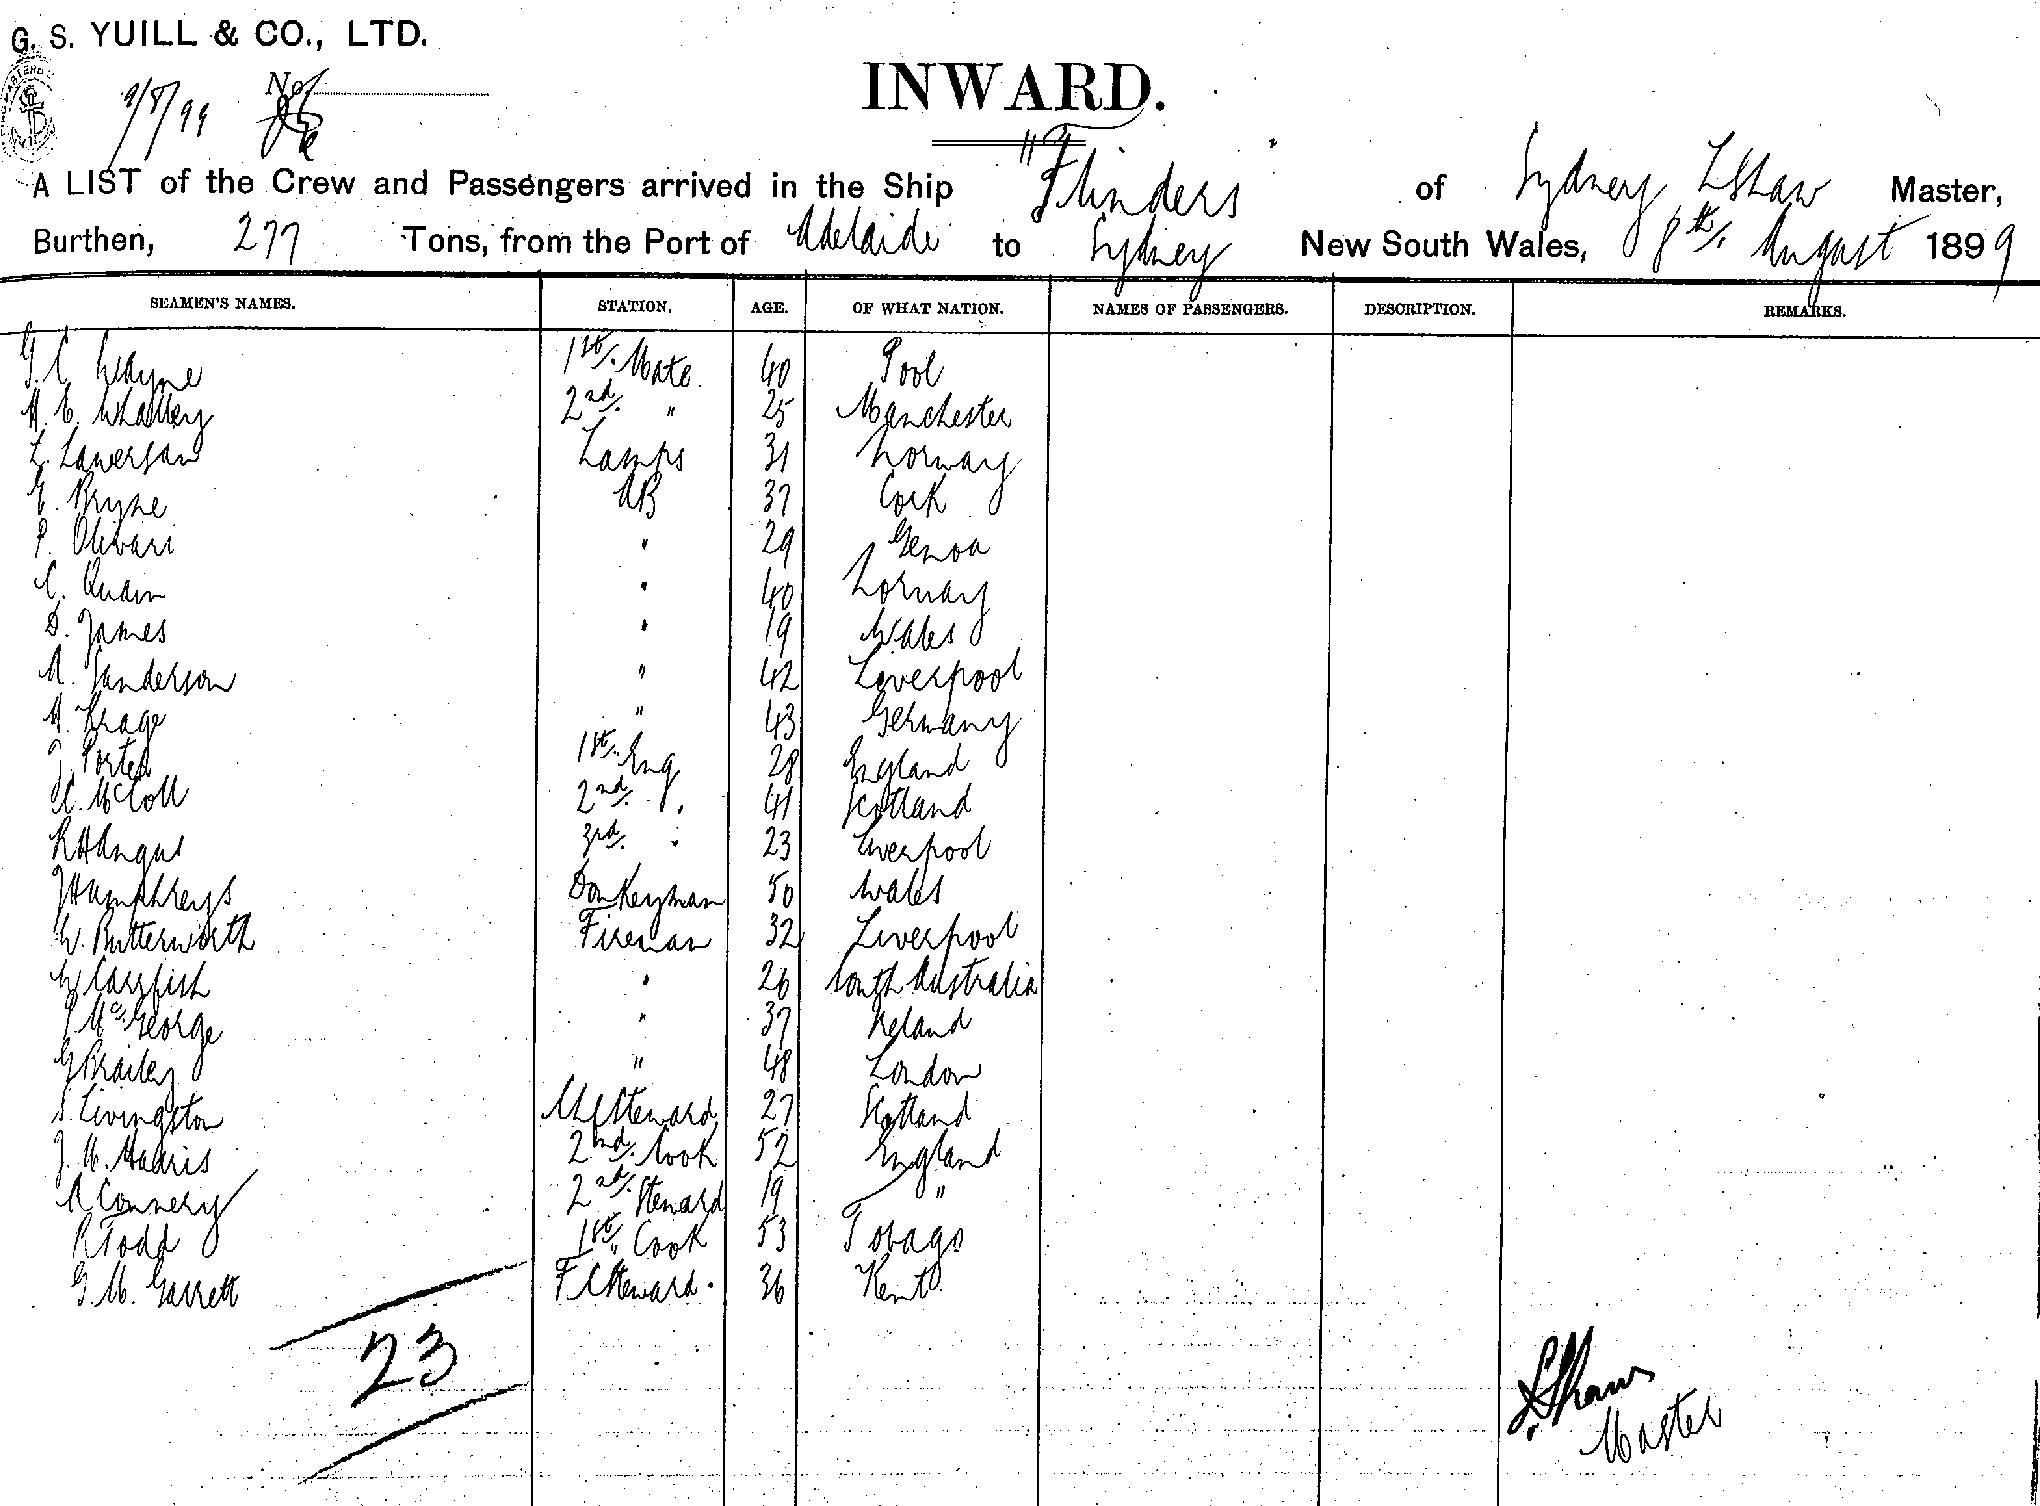 G. S. YUILL & CO., LTD.
No
9/8/99
INWARD.
A LIST of the Crew and Passengers arrived in the Ship "Flinders" of Sydney L Shaw Master,
Burthen, 277 Tons, from the Port of Adelaide to Sydney New South Wales, 8th/. August 1899
SEAMEN'S NAMES. STATION. AGE. OF WHAT NATION. NAMES OF PASSENGERS. DESCRIPTION. REMARKS.
G. C. Wayne 1st/. Mate. 40 Pool
H. E. Whalley 2nd/. " 25 Manchester
L. Lawersan Lamps 31 Norway
E. Bryne AB 37 Cork
P. Olivari " 29 Genoa
C. Quam " 40 Norway
D. James " 19 Wales
A. Sanderson " 42 Liverpool
H. Krage " 43 Germany
J. Porter 1st/. Eng 28 England
A. McColl 2nd/. " 41 Scotland
R H Angus 3rd/. " 23 Liverpool
J Humphreys Donkeyman 50 Wales
W. Butterworth Fireman 32 Liverpool
W " 26 South Australia
P McGeorge " 37 Ireland
G Brailey " 48 London
S. Livingston Ch Steward 27 Scotland
J. H. Harris 2nd/. Cook 52 England
A Connery 2nd/. Steward 19 "
R Todd 1st/. Cook 53 Tobago
G. M. Garrett F C Steward. 36 Kent
23
L Shaw
Master